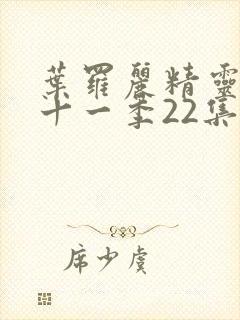 葉羅麗精靈
十一季22集
席少虞